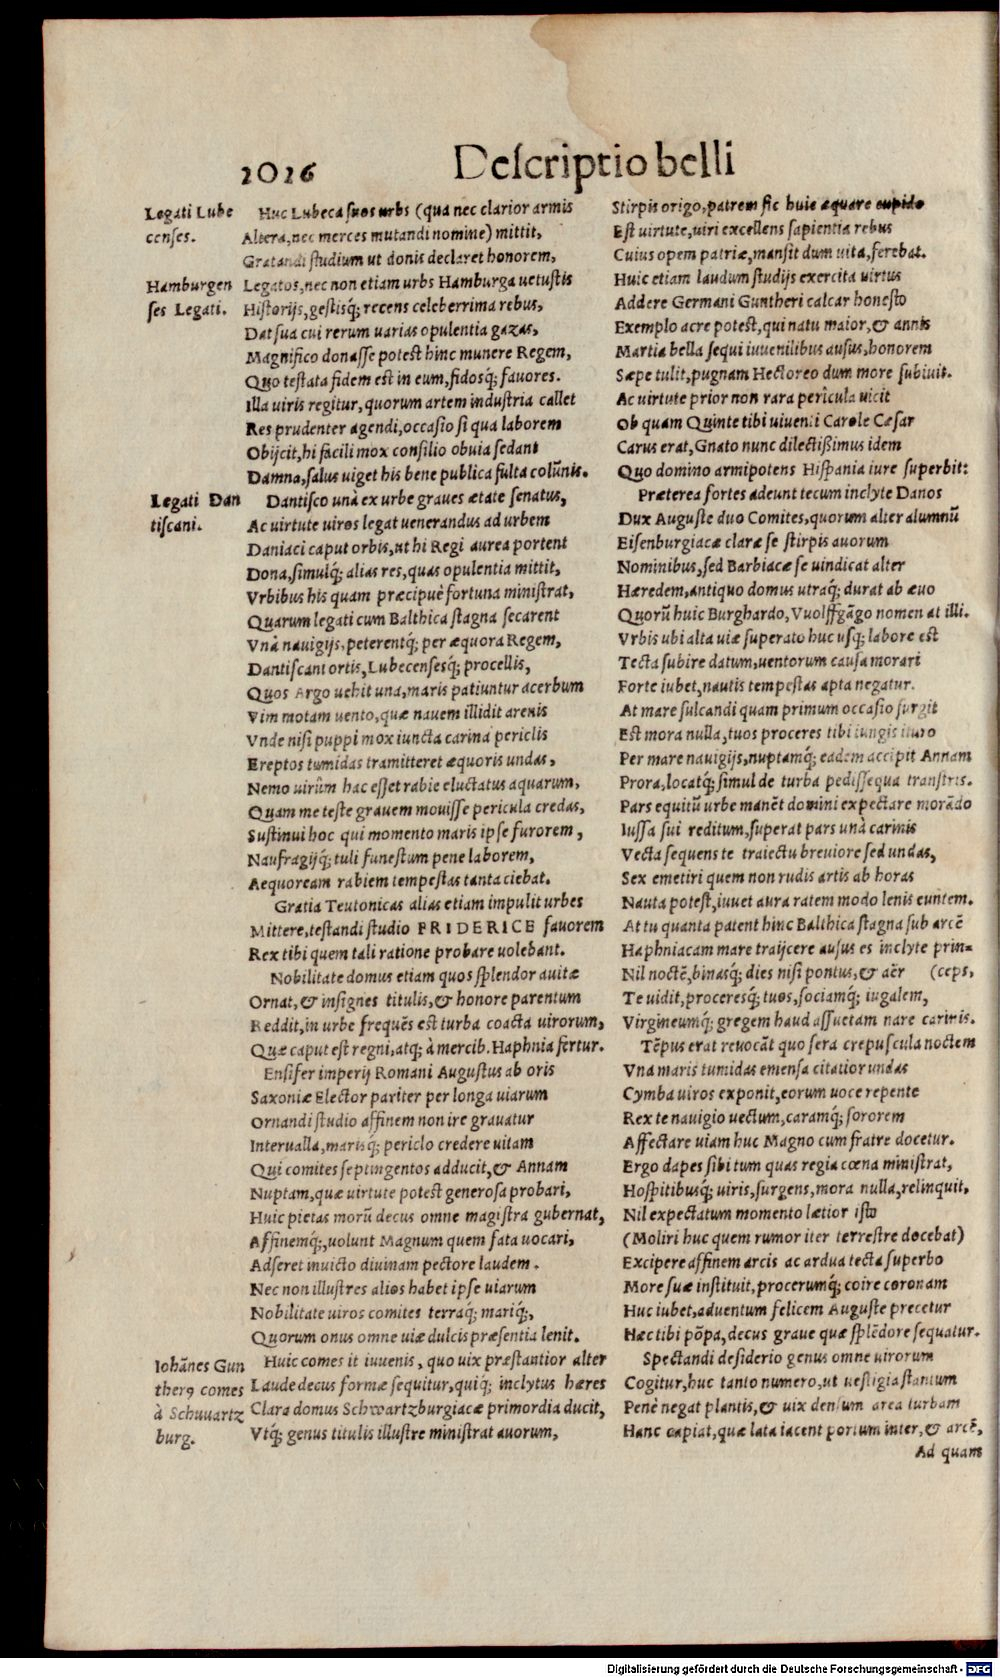 2026
Deſcriptio belli
Legati Lube
cenſes.
Hamburgen
ſes Legati.
Legati Dan
tiſcani.
Iohānes Gun
therꝰ comes
à Schuuartz
burg.
Huc Lubeca ſuos urbs (qua nec clarior armis
Altera, nec merces mutandi nomine) mittit,
Gratandi ſtudium ut donis declaret honorem,
Legatos, nec non etiam urbs Hamburga uetuſtis
Hiſtorijs, geſtisq́; recens celeberrima rebus,
Dat ſua cui rerum uarias opulentia gazas,
Magnifico donaſſe poteſt hinc munere Regem,
Quo teſtata fidem eſt in eum, fidosq́; fauores.
Illa uiris regitur, quorum artem induſtria callet
Res prudenter agendi, occaſio ſi qua laborem
Obijcit, hi facili mox conſilio obuia ſedant
Damna, ſalus uiget his bene publica fulta colūnis.
Dantiſco unà ex urbe graues ætate ſenatus,
Ac uirtute uiros legat uenerandus ad urbem
Daniaci caput orbis, ut hi Regi aurea portent
Dona, ſimulq́; alias res, quas opulentia mittit,
Vrbibus his quam præcipuè fortuna miniſtrat,
Quarum legati cum Balthica ſtagna ſecarent
Vnà nauigijs, peterentq́; per æquora Regem,
Dantiſcani ortis, Lubecenſesq́; procellis,
Quos Argo uehit una, maris patiuntur acerbum
Vim motam uento, quæ nauem illidit arenis
Vnde niſi puppi mox iuncta carina periclis
Ereptos tumidas tramitteret æquoris undas,
Nemo uirûm hac eſſet rabie eluctatus aquarum,
Quam me teſte grauem mouiſſe pericula credas,
Suſtinui hoc qui momento maris ipſe furorem,
Naufragijq́; tuli funeſtum pene laborem,
Aequoream rabiem tempeſtas tanta ciebat.
Gratia Teutonicas alias etiam impulit urbes
Mittere, teſtandi ſtudio FRIDERICE fauorem
Rex tibi quem tali ratione probare uolebant.
Nobilitate domus etiam quos ſplendor auitæ
Ornat, & inſignes titulis, & honore parentum
Reddit, in urbe frequēs eſt turba coacta uirorum,
Quæ caput eſt regni, atq; à mercib. Haphnia fertur.
Enſifer imperij Romani Auguſtus ab oris
Saxoniæ Elector pariter per longa uiarum
Ornandi ſtudio affinem non ire grauatur
Interualla, marisq́; periclo credere uitam
Qui comites ſeptingentos adducit, & Annam
Nuptam, quæ uirtute poteſt generoſa probari,
Huic pietas morū decus omne magiſtra gubernat,
Affinemq́;, uolunt Magnum quem fata uocari,
Adſeret inuicto diuinam pectore laudem.
Nec non illuſtres alios habet ipſe uiarum
Nobilitate uiros comites terraq́; mariq́;,
Quorum onus omne uiæ dulcis præſentia lenit.
Huic comes it iuuenis, quo uix præſtantior alter
Laude decus formæ ſequitur, quiq́; inclytus hæres
Clara domus Schwartzburgiacæ primordia ducit,
Vtq́; genus titulis illuſtre miniſtrat auorum,
Stirpis origo, patrem ſic huic æquare cupido
Eſt uirtute, uiri excellens ſapientia rebus
Cuius opem patriæ, manſit dum uita, ferebat.
Huic etiam laudum ſtudijs exercita uirtus
Addere Germani Guntheri calcar honeſto
Exemplo acre poteſt, qui natu maior, & annis
Martia bella ſequi iuuenilibus auſus, honorem
Sæpe tulit, pugnam Hectoreo dum more ſubiuit.
Ac uirtute prior non rara pericula uicit
Ob quam Quinte tibi uiuenti Carole Cæſar
Carus erat, Gnato nunc dilectißimus idem
Quo domino armipotens Hiſpania iure ſuperbit:
Præterea fortes adeunt tecum inclyte Danos
Dux Auguſte duo Comites, quorum alter alumnū
Eiſenburgiacæ claræ ſe ſtirpis auorum
Nominibus, ſed Barbiacæ ſe uindicat alter
Hæredem, antiquo domus utraq́; durat ab æuo
Quorū huic Burghardo, Vuolffgāgo nomen at illi.
Vrbis ubi alta uiæ ſuperato huc uſq́; labore eſt
Tecta ſubire datum, uentorum cauſa morari
Forte iubet, nautis tempeſtas apta negatur.
At mare ſulcandi quam primum occaſio ſurgit
Eſt mora nulla, tuos proceres tibi iungis ituro
Per mare nauigijs, nuptamq́; eadem accipit Annam
Prora, locatq́; ſimul de turba pediſſequa tranſtris.
Pars equitū urbe manēt domini expectare morādo
Iuſſa ſui reditum, ſuperat pars unà carinis
Vecta ſequens te traiectu breuiore ſed undas,
Sex emetiri quem non rudis artis ab horas
Nauta poteſt, iuuet aura ratem modo lenis euntem.
At tu quanta patent hinc Balthica ſtagna ſub arcē
Haphniacam mare traijcere auſus es inclyte prin=
Nil noctē, binasq́; dies niſi pontus, & aër (ceps,
Te uidit, proceresq́; tuos, ſociamq́; iugalem,
Virgineumq́; gregem haud aſſuetam nare carinis.
Tēpus erat reuocāt quo ſera crepuſcula noctem
Vna maris tumidas emenſa citatior undas
Cymba uiros exponit, eorum uoce repente
Rex te nauigio uectum, caramq́; ſororem
Affectare uiam huc Magno cum fratre docetur.
Ergo dapes ſibi tum quas regia cœna miniſtrat,
Hoſpitibusq́; uiris, ſurgens, mora nulla, relinquit,
Nil expectatum momento lætior iſto
(Moliri huc quem rumor iter terreſtre docebat)
Excipere affinem arcis ac ardua tecta ſuperbo
More ſuæ inſtituit, procerumq́; coire coronam
Huc iubet, aduentum felicem Auguſte precetur
Hæc tibi pōpa, decus graue quæ ſplēdore ſequatur.
Spectandi deſiderio genus omne uirorum
Cogitur, huc tanto numero, ut ueſtigia ſtantum
Penè negat plantis, & uix denſum area turbam
Hanc capiat, quæ lata iacent portum inter, & arcē,
Ad quam
Digitalisierung gefördert durch die Deutsche Forschungsgemeinschaft - DFG